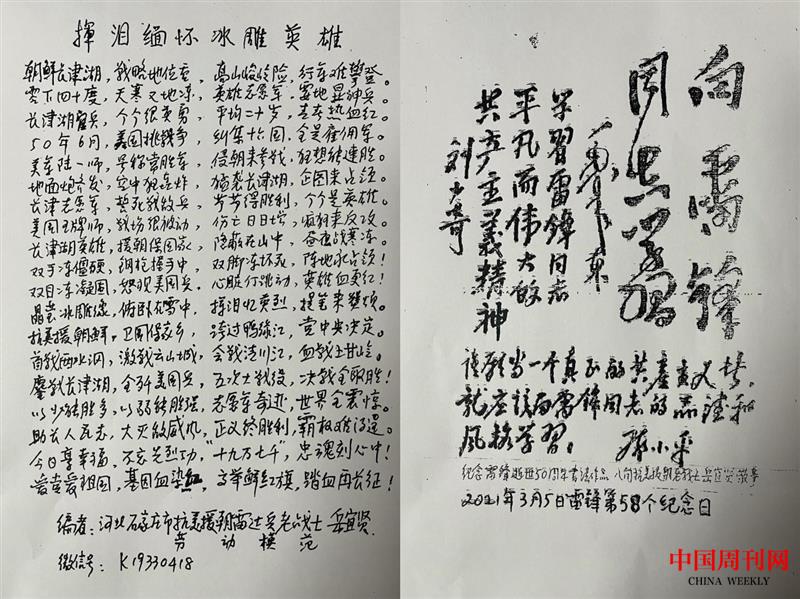 揮泪缅怀冰雕英雄
朝鲜长津湖，战略地位重，高山峻岭险，行军难攀登。
零下四十度，天寒又地冻，英雄志愿军，雪地显神兵。
长津湖官兵，个个很英勇，平均二十岁，青春热血红。
50年6月，美国挑战争，纠集十六国，全是雇佣军。
美军陆一师，号称常胜军，侵朝来参战，狂想能速胜。
地面炮齐发，空中狂轰炸，偷袭长津湖，企图来占领。
长津志愿军，誓死战敌兵，苦苦得胜利，个个是英雄。
美国王牌师，战场很被动，伤亡日日增，疯狂来反攻。
长津湖英雄，援朝保国家，隐蔽在山中，昼夜战寒冻。
双手冻僵硬，钢枪握手中，双脚冻坏死，阵地永占领！
双目冻凝固，怒视美国兵，心脏仃跳动，英雄血更红！
晶莹冰雕德，俯卧在雪中，揮泪忆英烈，提笔来赞颂。
抗美援朝鲜，卫国保家乡，跨过鸭绿江，党中央决定。
首战两水洞，激战云山城，会战清川江，血战上甘岭。
鏖战长津湖，全歼美国兵，五次大战役，决战全取胜！
以少能胜多，以弱能胜强，志愿军奇迹，世界全震惊。
助长人民志，大灭敌威风，正义终胜利，霸权难得逞。
今日享幸福，不忘先烈功，十九万七千，忠魂刻心中！
爱党爱祖国，基因血染红，高举鲜红旗，踏血再长征！
编者：河北石家庄市抗美援朝雷达兵老战士 岳宜贤
劳动模范
微信号：K19330418
向雷锋
同志学习
毛泽东
学習雷鋒同志
平凡而伟大的
共产主義精神
刘少奇
谁愿当一个真正的共产主义者，
就应该向雷锋同志的品德和
风格学习。邓小平
纪念雷锋逝世50周年书法作品 八旬抗美援朝老战士岳宜贤敬书
2021年3月5日雷锋第58个纪念日
中国周刊网
CHINA WEEKLY